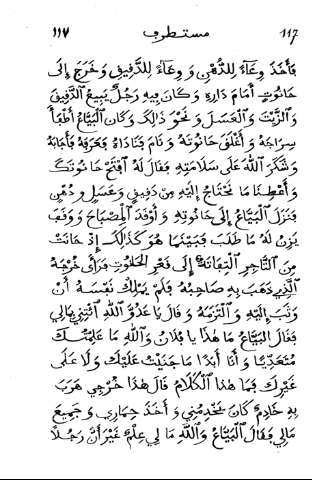 ١١٧ مستطرف 117
فأخذ وعاءً للدهن و وعاءً للدفيق وخرج إلى
حانوت أمام داره وكان فيه رجل يبيع الدفيق
والزيت والعسل ونحو ذالك وكان البياع أطفأ
سراجه وأغلق حانوته ونام فناداه فعرفه فأجابه
وشكر الله على سلامته فقال له افتح حانوتك
وأعطنا ما نحتاج إليه من دفيق وعسل ودهن
فنزل البياع إلى حانوته وأوقد المصباح ووقف
يزن له ما طلب فبينما هو كذالك إذ حانت
من التاجر التفاتة إلى قعر الحانوت فرأى خرجه
الذي هرب به صاحبه فلم يملك نفسه أن
وثب إليه والتزمه وقال يا عدو الله ائتني بمالي
فقال البياع ما هذا يا فلان والله ما علمتك
متعديًا وأنا أبدًا ما جنيت عليك ولا على
غيرك فما هذا الكلام قال هذا خرجي هرب
به خادم كان يخدمني وأخذ حماري وجميع
مالي فقال البياع والله ما لي علم غير أن رجلاً